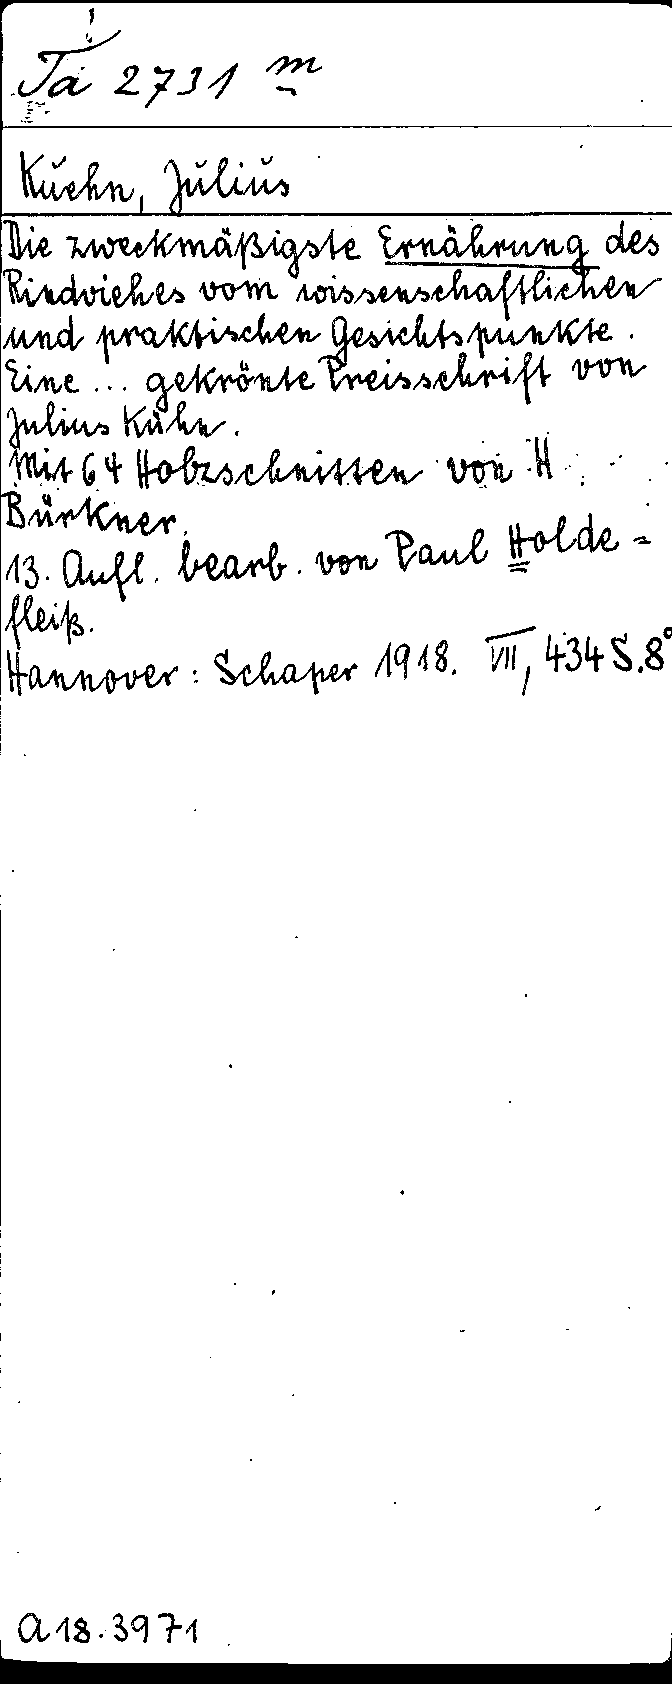 Ta 2731 m
Kuehn, Julius
Die zweckmäßigste Ernährung des
Rindviehes vom wissenschaftlichen
und praktischen Gesichtspunkte.
Eine ... gekrönte Preisschrift von
Julius Kühn.
Mit 64 Holzschnitten von H.
Bürkner.
13. Aufl. bearb. von Paul Holde=
fleiß.
Hannover: Schaper 1918. VII, 434 S. 8°
A 18.3971